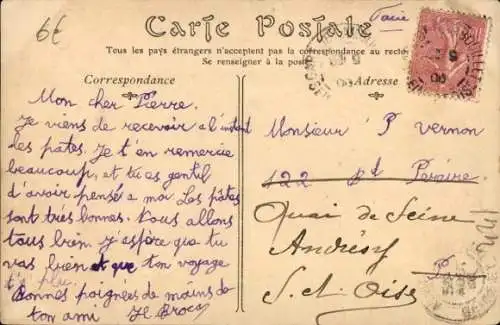 6€
Carte Postale
Paris
Tous les pays étrangers n'acceptent pas la correspondance au recto
Se renseigner à la poste
Correspondance
Mon cher Pierre.
Je viens de recevoir à l'instant
les pâtes. Je t'en remercie
beaucoup, et tu es gentil
d'avoir pensé a moi Les pâtes
sont très bonnes. Nous allons
tous bien. J'espère que tu
vas bien et que ton voyage
t'a plu.
Bonnes poignées de mains de
ton ami
Adresse
Monsieur P Vernon
122 Bd Pereire
Quai de Seine
Andrésy
S. et. Oise